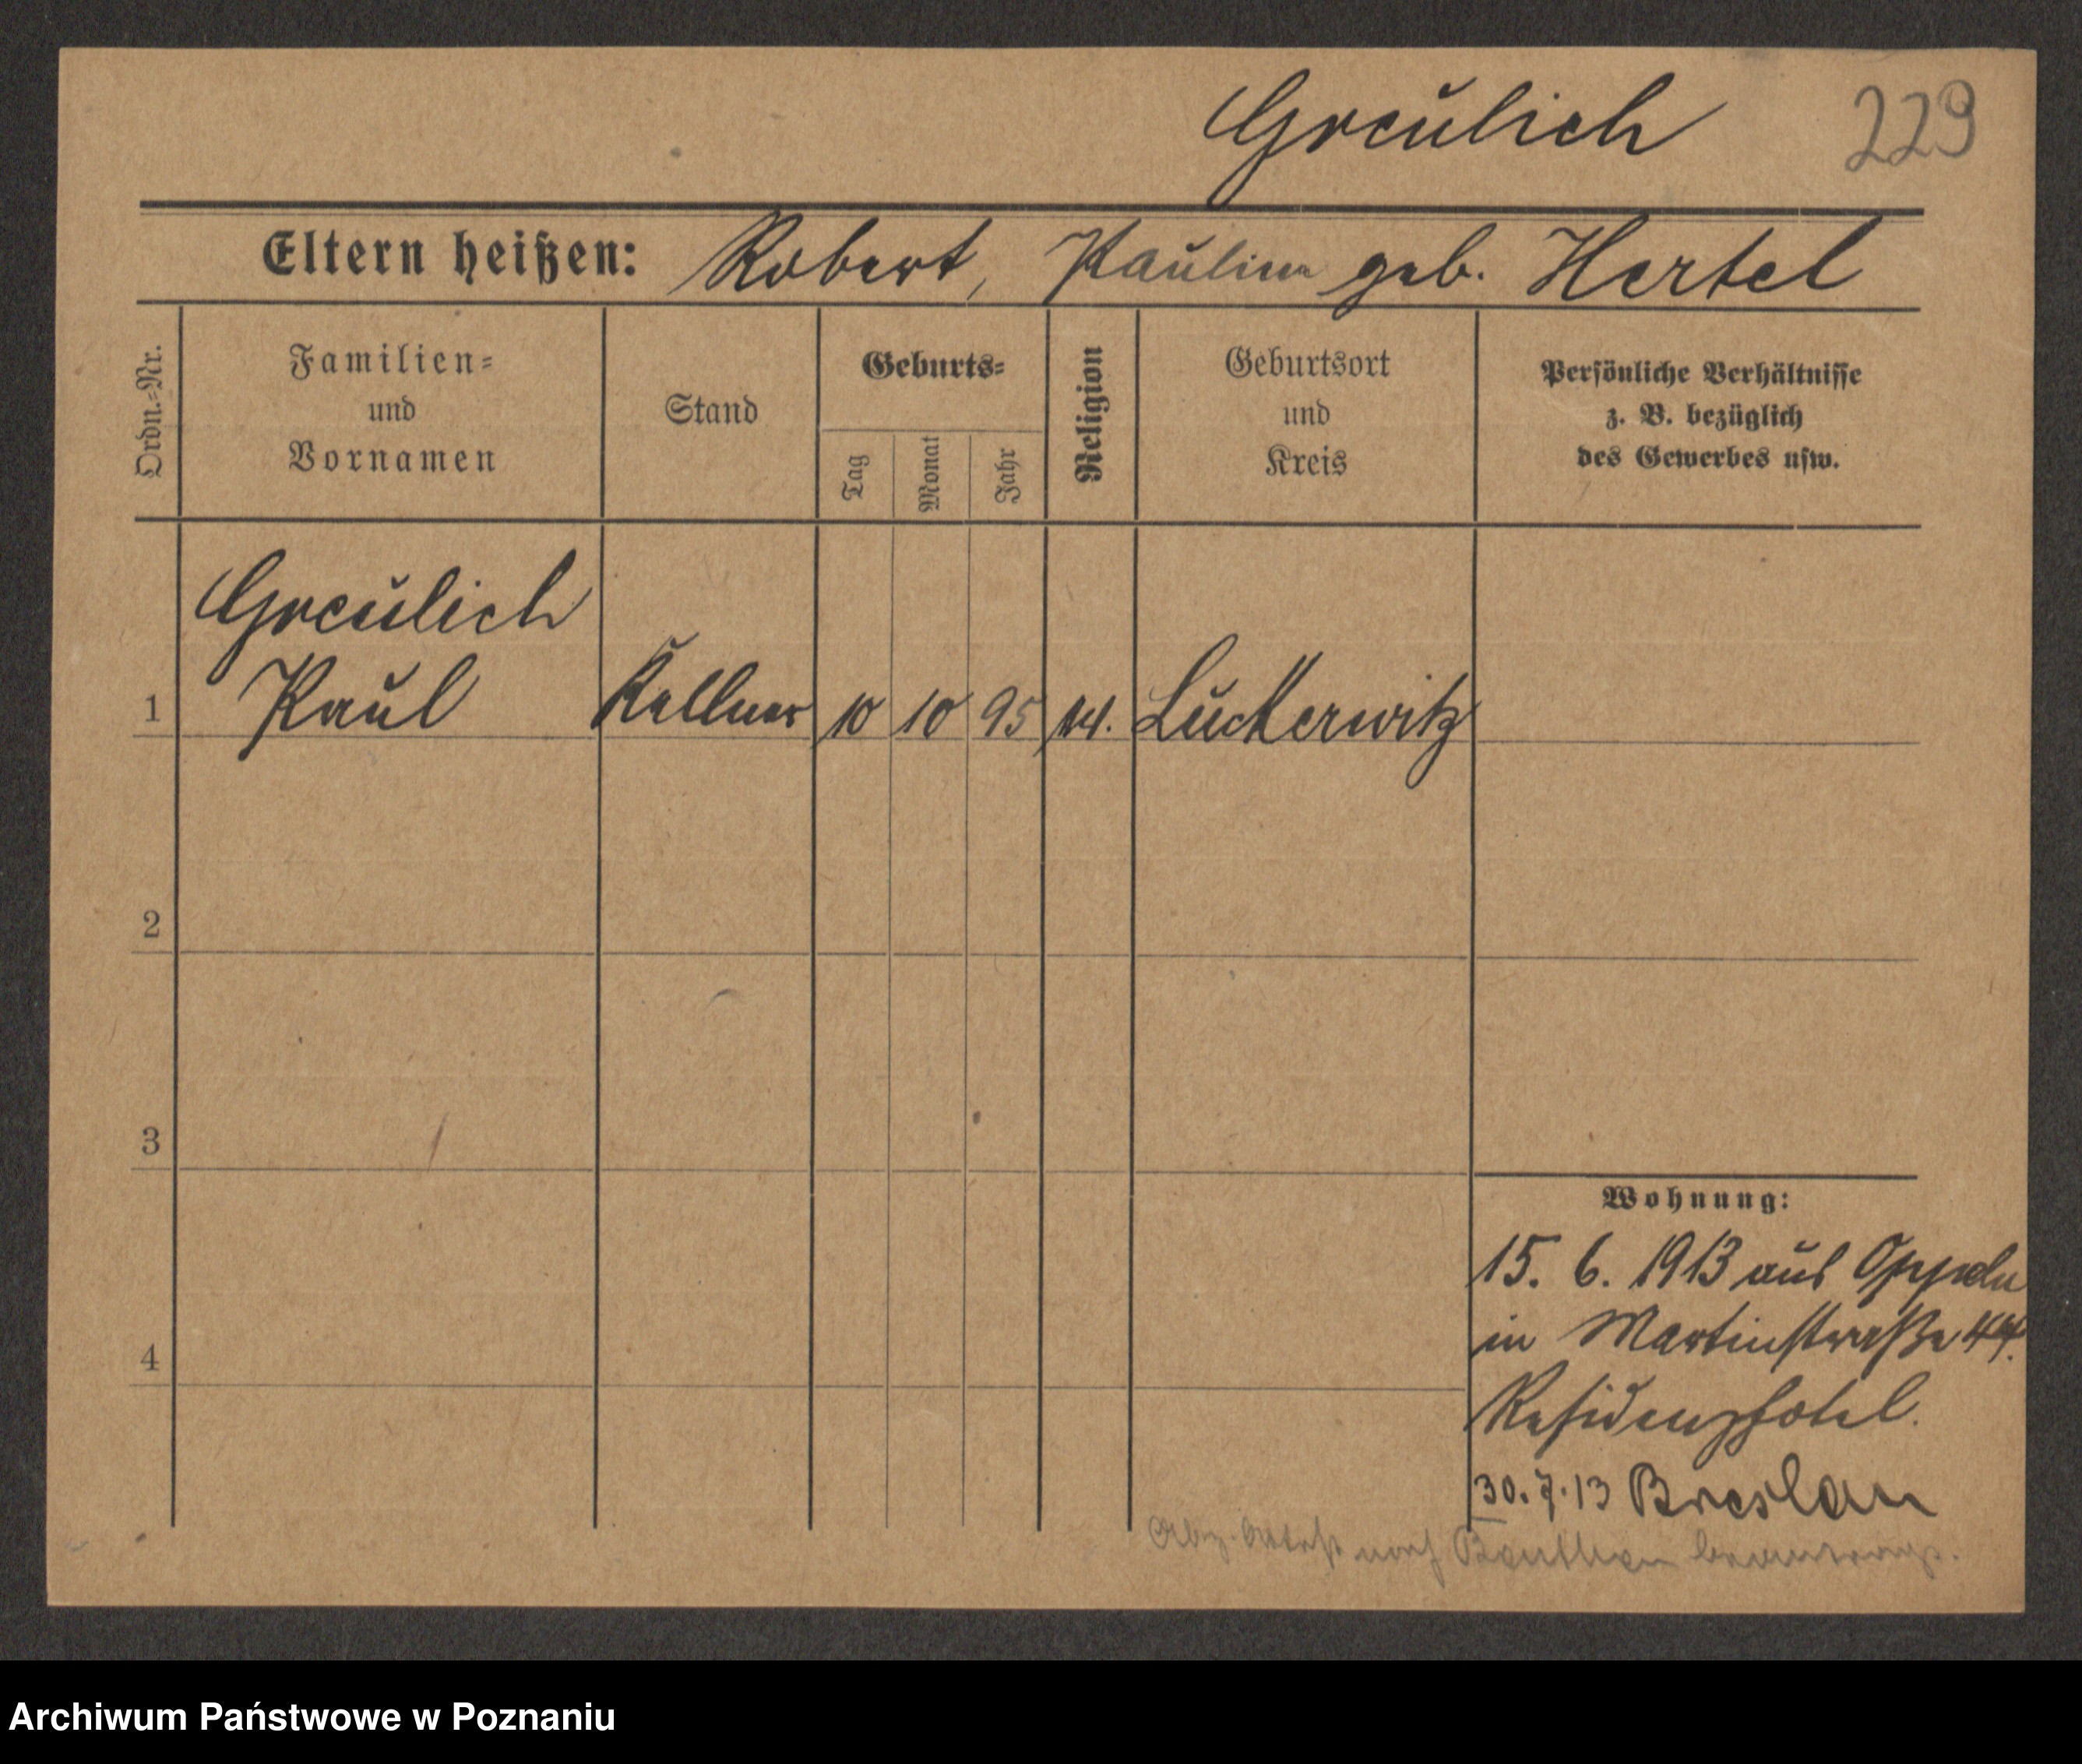 Greulich 229
Eltern heißen: Robert, Pauline geb. Hertel
Ordn.-Nr.
Familien-
und
Vornamen
Stand
Geburts-
Tag
Monat
Jahr
Religion
Geburtsort
und
Kreis
Persönliche Verhältnisse
z. B. bezüglich
des Gewerbes usw.
Greulich
1 Paul Kellner 10 10 95 Luckerwitz
2
3
4
Wohnung:
15. 6. 1913 aus Oppeln
in Martinstraße 44.
Residenzhotel.
30.7.13 Breslau
nach Beuthen
Archiwum Państwowe w Poznaniu